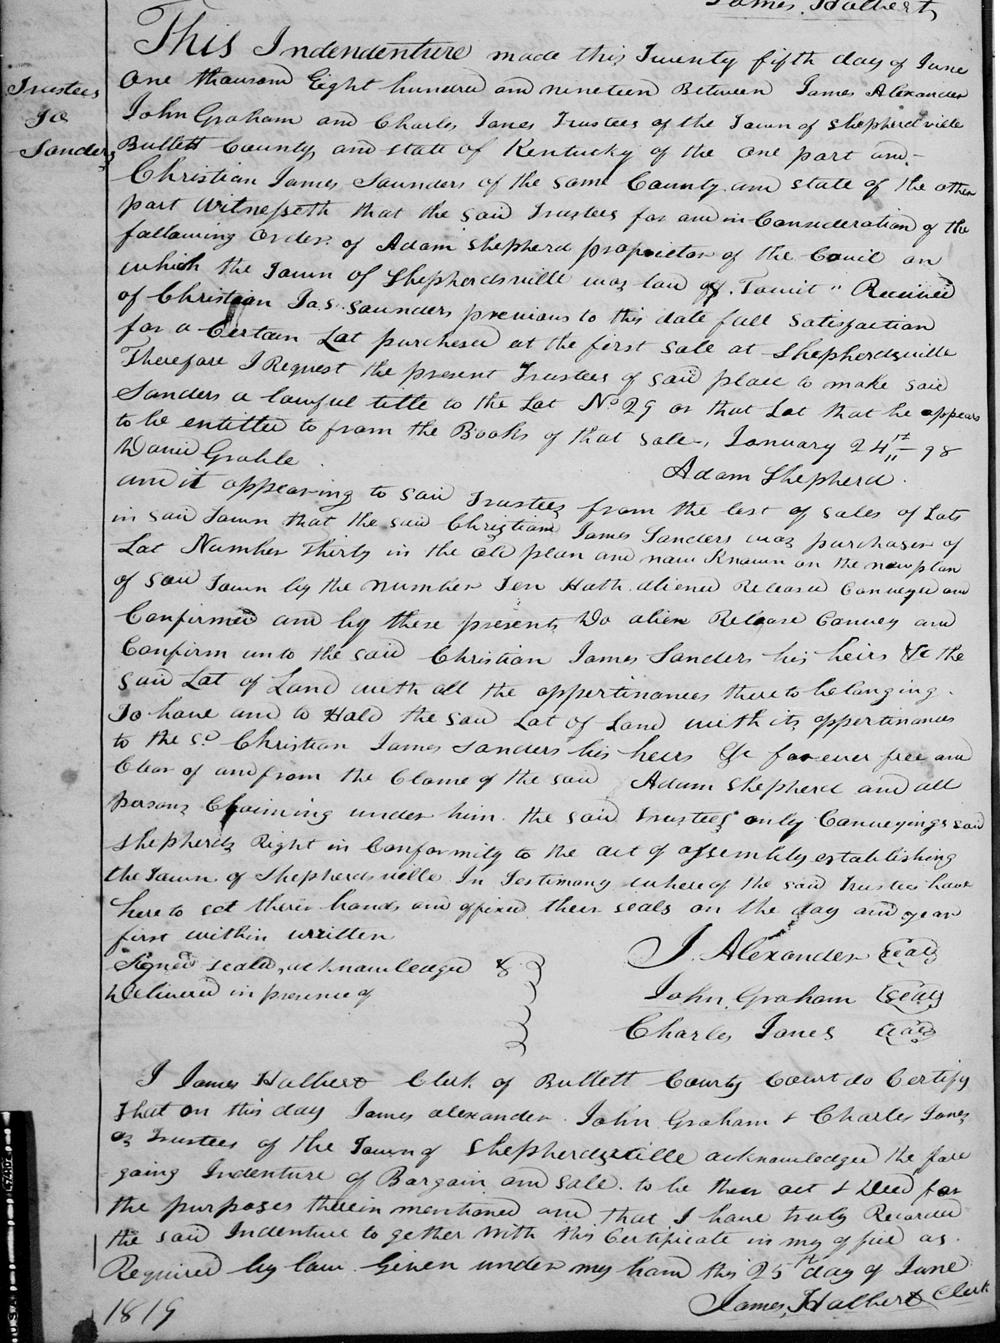 James Halbert
Trustees
To
Sanders
This Indendenture made this Twenty fifth day of June
One thousand Eight hundred and nineteen Between James Alexander
John Graham and Charles Jones Trustees of the Town of Shepherdsville
Bullett County and state of Kentucky of the one part and-
Christian James Saunders of the same County and state of the other
part Witnesseth that the said Trustees for and in Consideration of the
following order of Adam Shepherd proprietor of the on
which the Town of Shepherdsville was laid off. Towit " Received
of Christian Jas. Saunders previous to this date full satisfaction
for a Certain Lot purchased at the first sale at Shepherdsville
Therefore I Request the present Trustees of said place to make said
Sanders a lawful title to the Lot No 29 or that Lot that he appears
to be entitled to from the Books of that sale, January 24th 98
David Grable
Adam Shepherd.
and it appearing to said Trustees from the list of sales of Lots
in said Town that the said Christian James Sanders was purchaser of
Lot Number Thirty in the old plan and now Known on the new plan
of said Town by the number Ten Hath aliened Released Conveyed and
Confirmed and by these presents Do alien Release Convey and
Confirm unto the said Christian James Sanders his heirs &c the
said Lot of Land with all the appertinances thereto belonging.
To have and to Hold the said Lot of Land with its appertinances
to the sd Christian James Sanders his heirs &c forever free and
Clear of and from the Clame of the said Adam Shepherd and all
persons Claiming under him the said Trustees only Conveyings said
Shepherds Right in Conformity to the act of assembly establishing
the Town of Shepherdsville In Testimony whereof the said Trustees have
here to set their hands and affixed their seals on the day and year
first within written
Signed seald, acknowledged &
Delivered in presence of
J. Alexander Seal
John Graham Seal
Charles Jones Seal
I James Halbert Clerk of Bullett County Court do Certify
that on this day James alexander. John Graham & Charles Jones
as Trustees of the Town of Shepherdsville acknowledged the fore
going Indenture of Bargain and sale. to be their act & Deed for
the purposes therein mentioned and that I have truly Recorded
the said Indenture to gether with this Certificate in my office as.
Required by law. Given under my hand this 25th day of June
1819
James Halbert Clerk